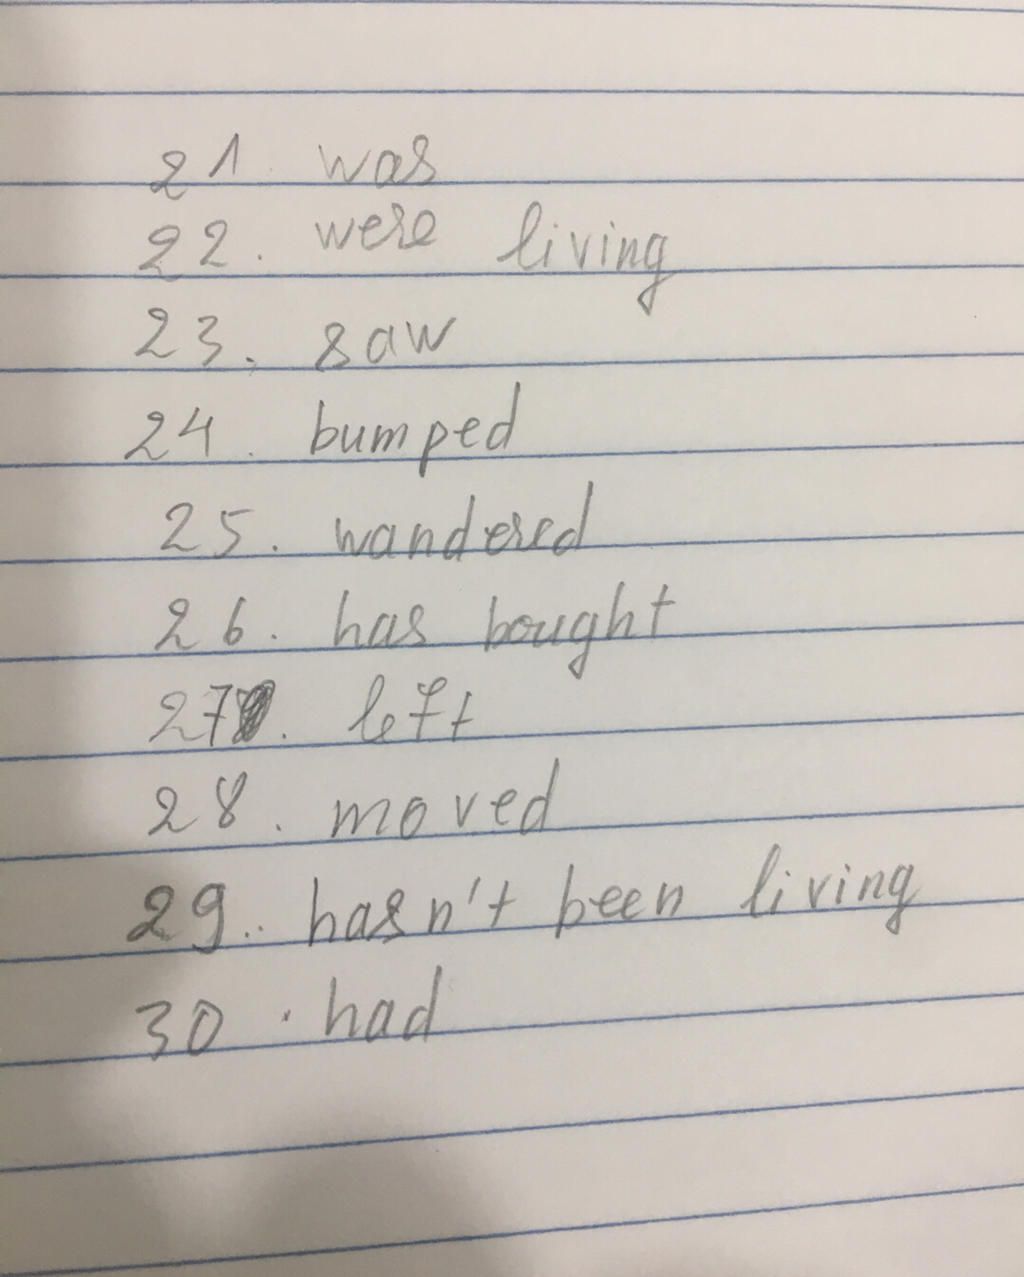 21. was
22. were living
23. saw
24. bumped
25. wandered
26. has bought
27. left
28. moved
29. hasn't been living
30. had